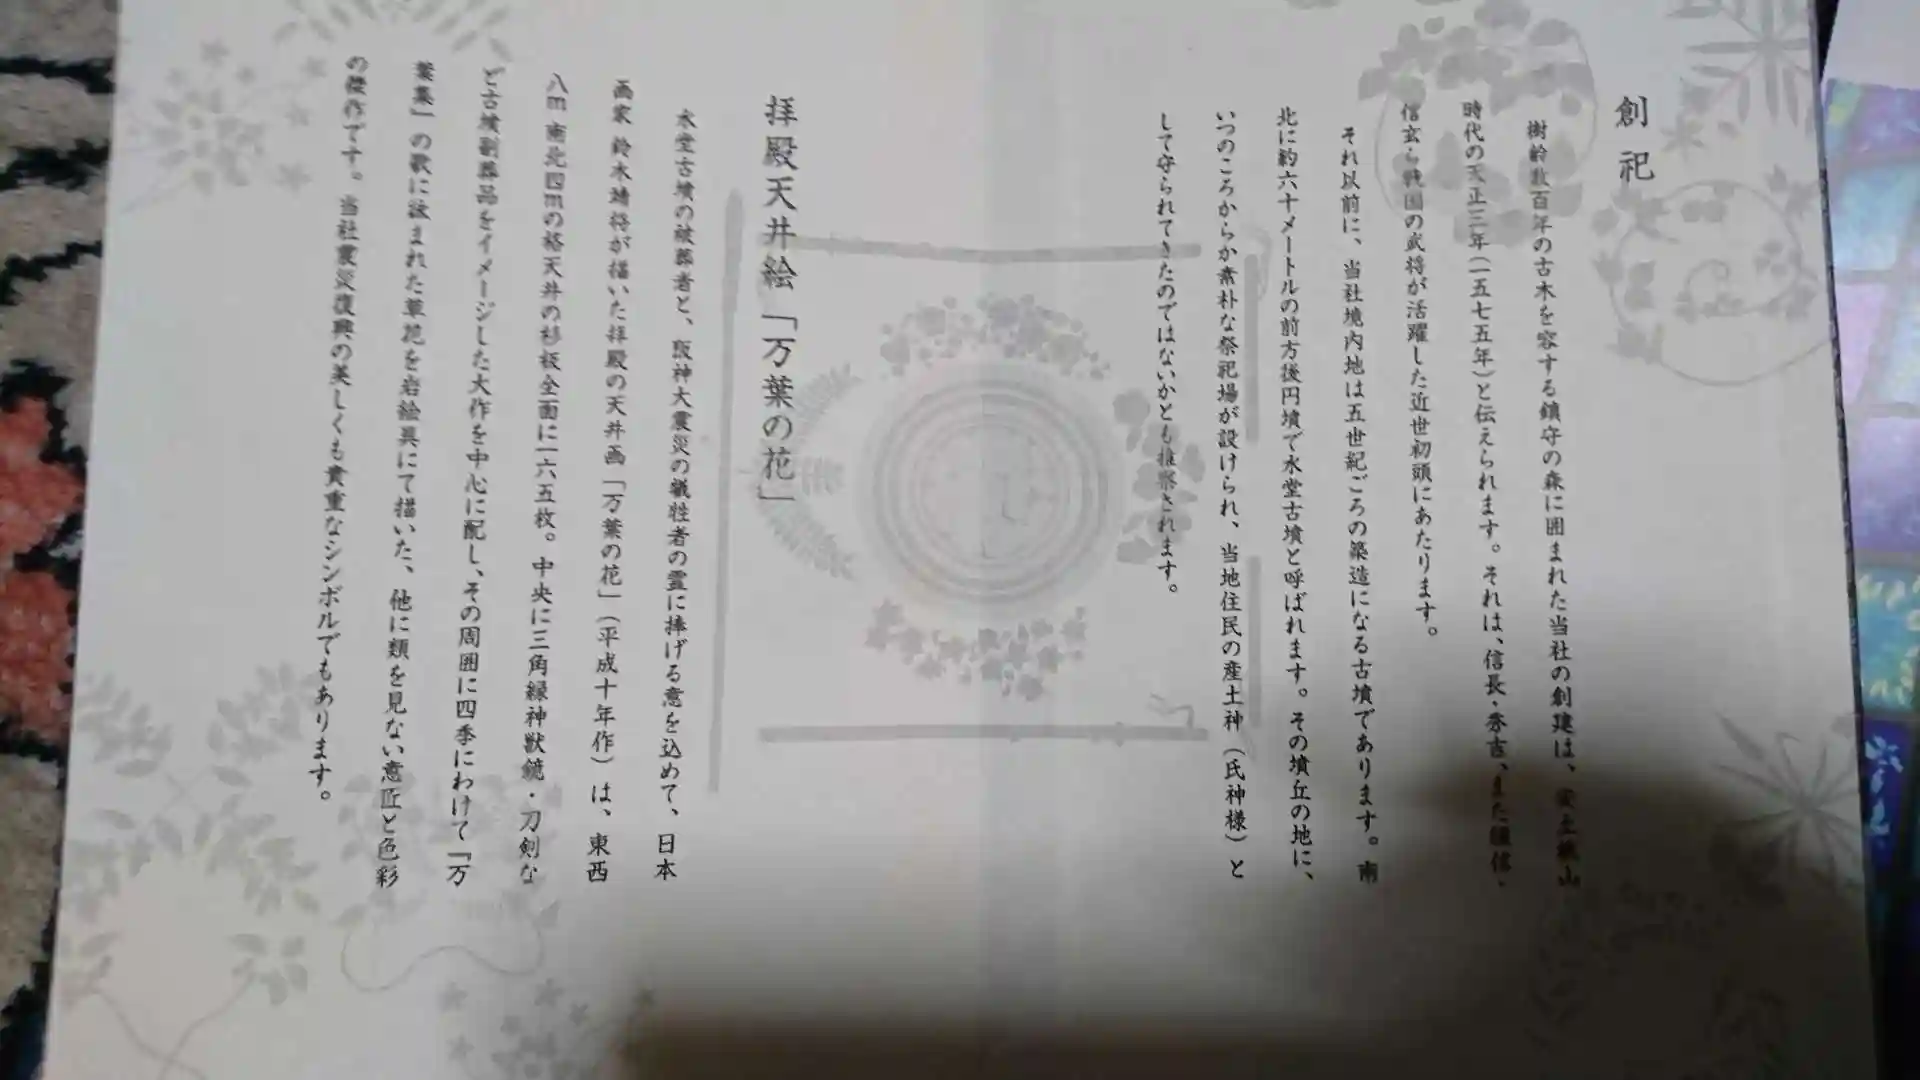 創祀
樹齢数百年の古木を容する鎮守の森に囲まれた当社の創建は、安土桃山
時代の天正三年（一五七五年）と伝えられます。それは、信長・秀吉、また謙信・
信玄ら戦国の武将が活躍した近世初頭にあたります。
それ以前に、当社境内地は五世紀ごろの築造になる古墳であります。南
北に約六十メートルの前方後円墳で水堂古墳と呼ばれます。その墳丘の地に、
いつのころからか素朴な祭祀場が設けられ、当地住民の産土神（氏神様）と
して守られてきたのではないかとも推察されます。
拝殿天井絵「万葉の花」
水堂古墳の被葬者と、阪神大震災の犠牲者の霊に捧げる意を込めて、日本
画家 鈴木靖将が描いた拝殿の天井画「万葉の花」（平成十年作）は、東西
八m 南北四mの格天井の杉板全面に一六五枚。中央に三角縁神獣鏡・刀剣な
ど古墳副葬品をイメージした大作を中心に配し、その周囲に四季にわけて「万
葉集」の歌に詠まれた草花を岩絵具にて描いた、他に類を見ない意匠と色彩
の傑作です。当社震災復興の美しくも貴重なシンボルでもあります。